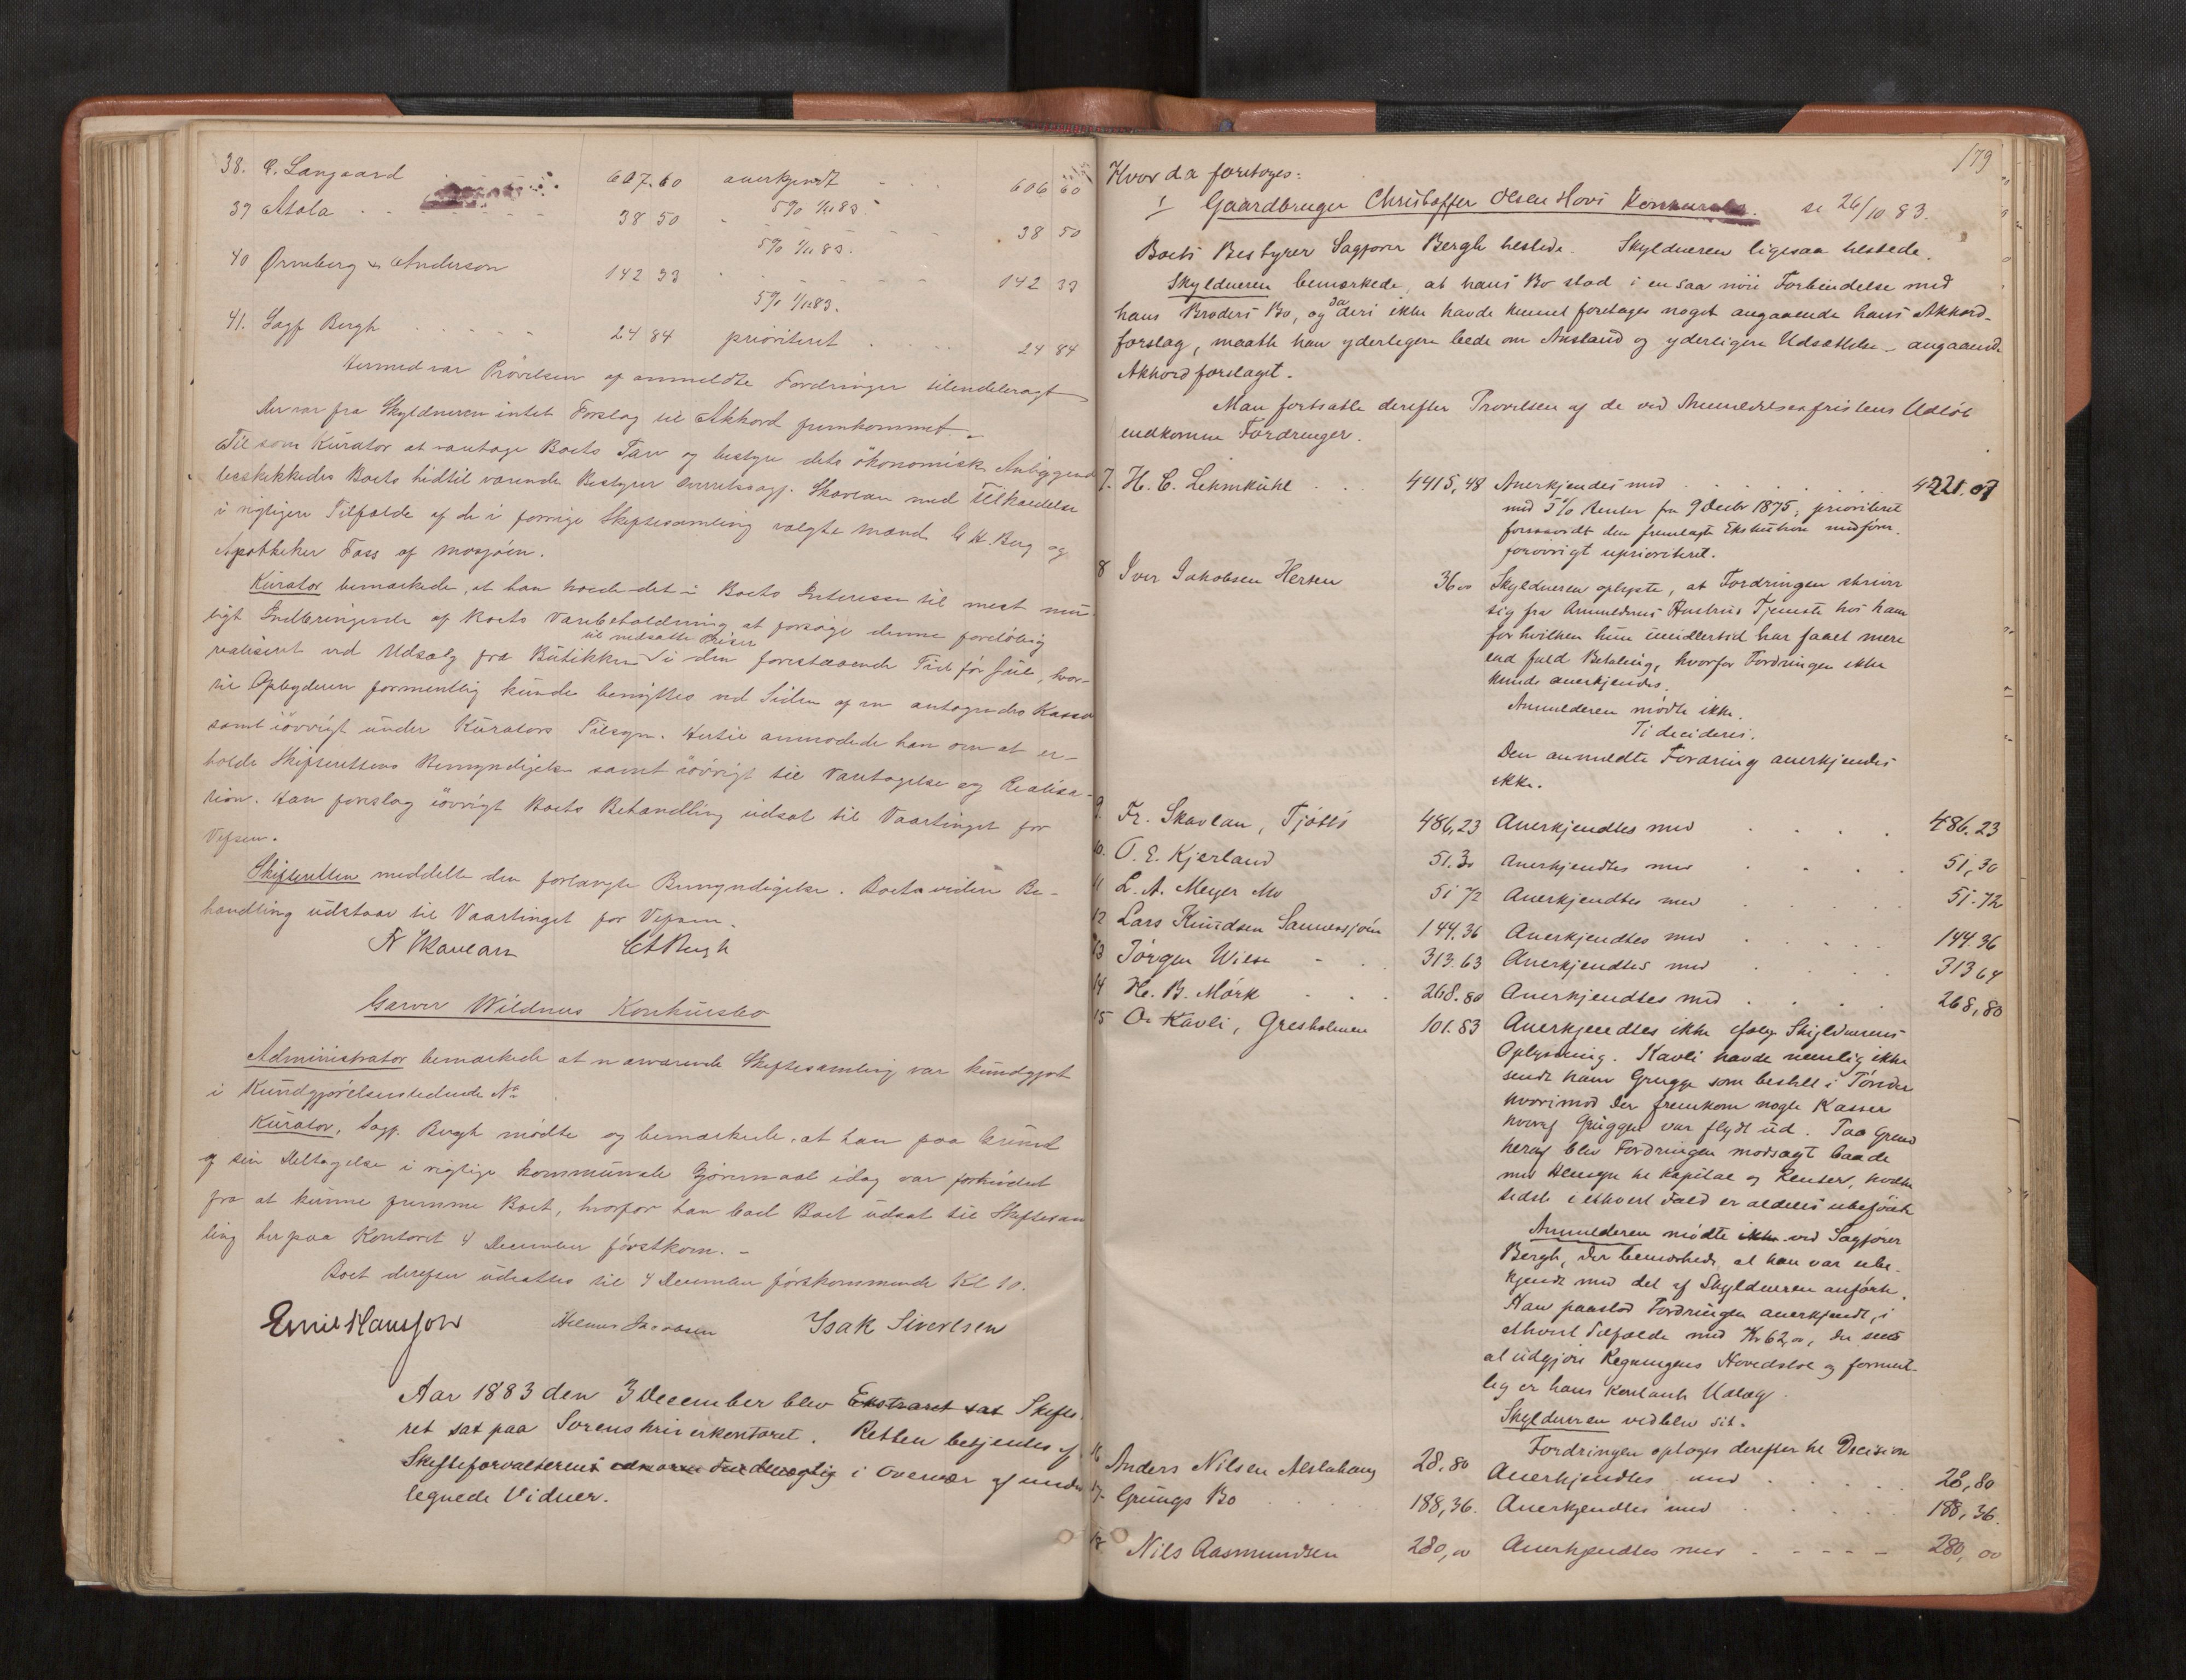 38. C. Langaard 607.60 anerkjendt 606 60
5% 1/11 83.
39 Atola 38 50 38 50
5% 1/11 83.
40 Ørneberg & Anderson 142 33 142 33
5% 1/11 83.
41. Sagf Bergh 24 84 prioriteret 24 84
Hermed var Prøvelsen af anmeldte Fordringer tilendebragt
Der var fra Skyldneren intet Forslag til Akkord fremkommet.
Til som Kurator at varetage Boets Tarv og bestyre dets økonomiske Anliggender
beskikkedes Boets hidtil værende Bestyrer Overretssagf. Skavlan med Tilkaldelse
i vigtigere Tilfælde af de i forrige Skiftesamling valgte Mænd C H. Berg og
Apotheker Fass af Mosjøen.
Kurator bemærkede, at han troede det i Boets Interesse til mest mu-
ligt Indbringende af Boets Varebeholdning at forsøge denne foreløbig
realiseret ved Udsalg fra Butikken til nedsatte Priser i den forestaaende Tid før Jul, hvor-
til Opbyderen formentlig kunde benyttes ved Siden af en antagendes Kasse
samt iøvrigt under Kurators Tilsyn. Hertil anmodede han om at er-
holde Skifterettens Bemyndigelse samt iøvrigt til Varetagelse og Realisa-
tion. Han foreslog iøvrigt Boets Behandling udsat til Vaartinget for
Vefsen.
Skifteretten meddelte den forlangte Bemyndigelse. Boets videre Be-
handling udstaar til Vaartinget for Vefsen.
Fr Skavlan CABergh
Garver Wildnus Konkursbo
Administrator bemærkede at nærværende Skiftesamling var kundgjort
i Kundgjørelsestidende No
Kurator, Sagf. Bergh mødte og bemærkede, at han paa Grund
af sin Deltagelse i vigtige kommunale Gjøremaal idag var forhindret
fra at kunne fremme Boet, hvorfor han bad Boet udsat til Skiftesam
ling her paa Kontoret 4 December førstkom. -
Boet derefter udsattes til 4 December førstkommende Kl 10.
Emil Hansson Hilmer Jacobsen Isak Sivertsen
Aar 1883 den 3 December blev Ekstraret sat Skifte-
ret sat paa Sorenskriverkontoret. Retten betjentes af
Skifteforvalterens i Overvær af under
tegnede Vidner.
179
Hvor da foretoges:
1 Gaardbruger Christoffer Olsen Hovs Konkursbo. se 26/10 83.
Boets Bestyrer Sagfører Bergh tilstede. Skyldneren ligesaa tilstede.
Skyldneren bemærkede, at hans Bo stod i en saa nøie Forbindelse med
hans Broders Bo, og da deri ikke havde kunnet foretages noget angaaende hans Akkord-
forslag, maatte han yderligere bede om Anstand og yderligere Udsættelse angaaende
Akkordforslaget.
Man fortsatte derefter Prøvelsen af de ved Anmeldelsesfristens Udløb
indkomne Fordringer.
7. H. C. Lehmkühl 4415,48 Anerkjendes med 4221.07
med 5% Renter fra 9 Decbr 1875; prioriteret
forsaavidt den fremlagte Eksekution medfører.
forøvrigt uprioriteret.
8 Iver Jakobsen Hersen 36 00 Skyldneren oplyste, at Fordringen skriver
sig fra Anmelderens Hustrus Tjeneste hos ham
for hvilken hun imidlertid har faaet mere
end fuld Betaling, hvorfor Fordringen ikke
kunde anerkjendes.
Anmelderen mødte ikke.
Ti decideres.
Den anmeldte Fordring anerkjendes
ikke.
9. Fr. Skavlan, Tjøttø 486,23 Anerkjendtes med 486.23
10. O. E. Kjerland 51.30 Anerkjendtes med 51,30
11 L. A. Meyer Mo 51 72 Anerkjendtes med 51.72
12 Lars Knudsen Sannessjøen 144.36 Anerkjendtes med 144.36
13 Jørgen Wiese 313.63 Anerkjendtes med 313 64
14 H. B. Mörk 268.80 Anerkjendtes med 268,80
15 O. Kavli, Gresholmen 101.83 Anerkjendtes ikke ifølge Skyldnerens
Oplysning. Kavli havde nemlig ikke
sendt ham Grugge som bestilt i Tønder
hvorimod der fremkom nogle Kasser
hvoraf Gruggen var flydt ud. Paa Grund
heraf blev Fordringen modsagt baade
med Hensyn til Kapital og Renter, hvilke
sidste i ethvert Fald er aldeles ubeføiede
Anmelderen mødte ikke ved Sagfører
Bergh, der bemærkede, at han var ube-
kjendt med det af Skyldneren anførte.
Han paastod Fordringen anerkjendt, i
ethvert Tilfælde med Kr 62,00, der sees
at udgjøre Regningens Hovedstol og forment-
lig er hans kontante Udlæg.
Skyldneren vedblev sit.
Fordringen optoges derefter til Decision
16 Anders Nilsen Alstahaug 28.80 Anerkjendtes med 28,80
17. Grungs Bo 188,36. Anerkjendtes med 188,36.
18. Nils Aasmundsen 280,00 Anerkjendtes med 280,00